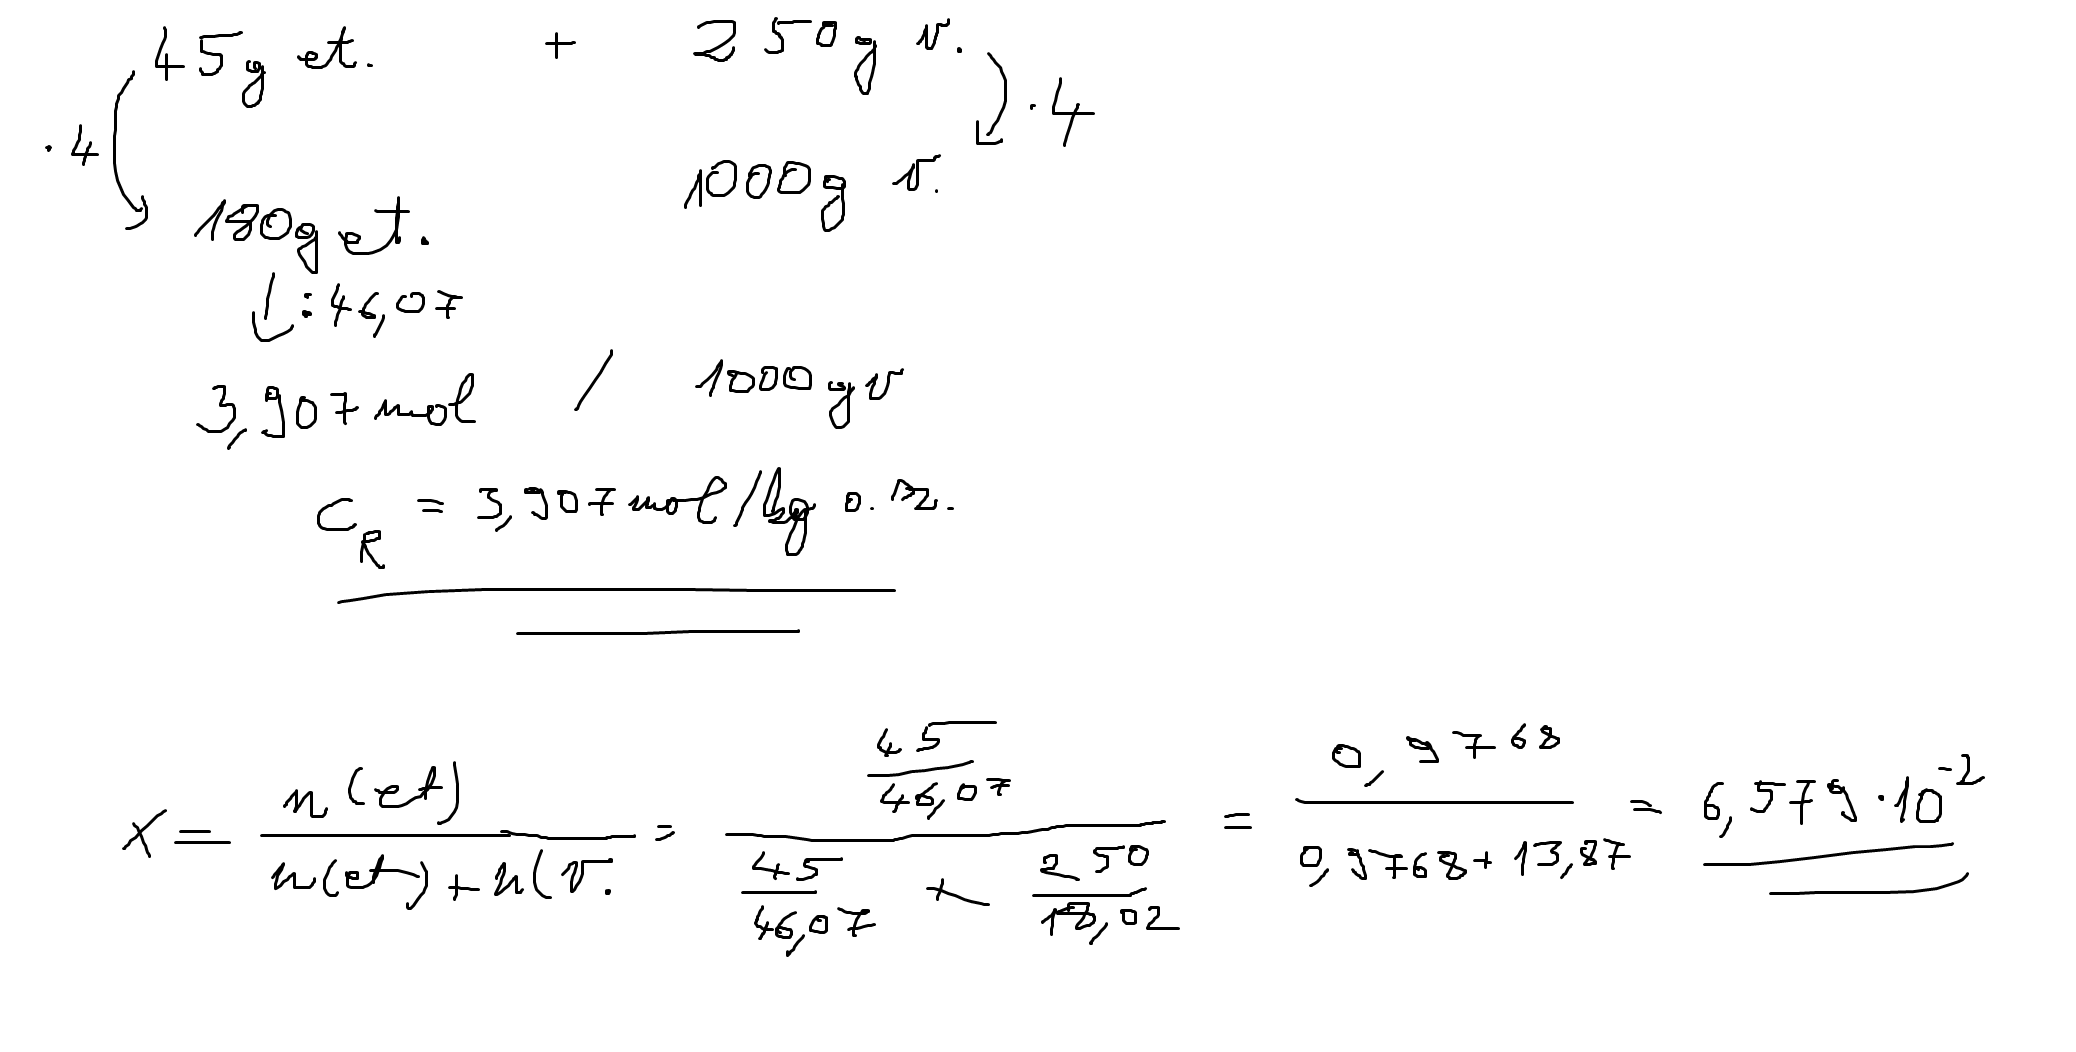 45g et. + 250g v.
·4 ·4
180g et. 1000g v.
:46,07
3,907 mol / 1000g v
C_R = 3,907 mol/kg o. sz.
x = n(et) / n(et) + n(v. = 45/46,07 / 45/46,07 + 250/18,02 = 0,9768 / 0,9768 + 13,87 = 6,579·10^-2